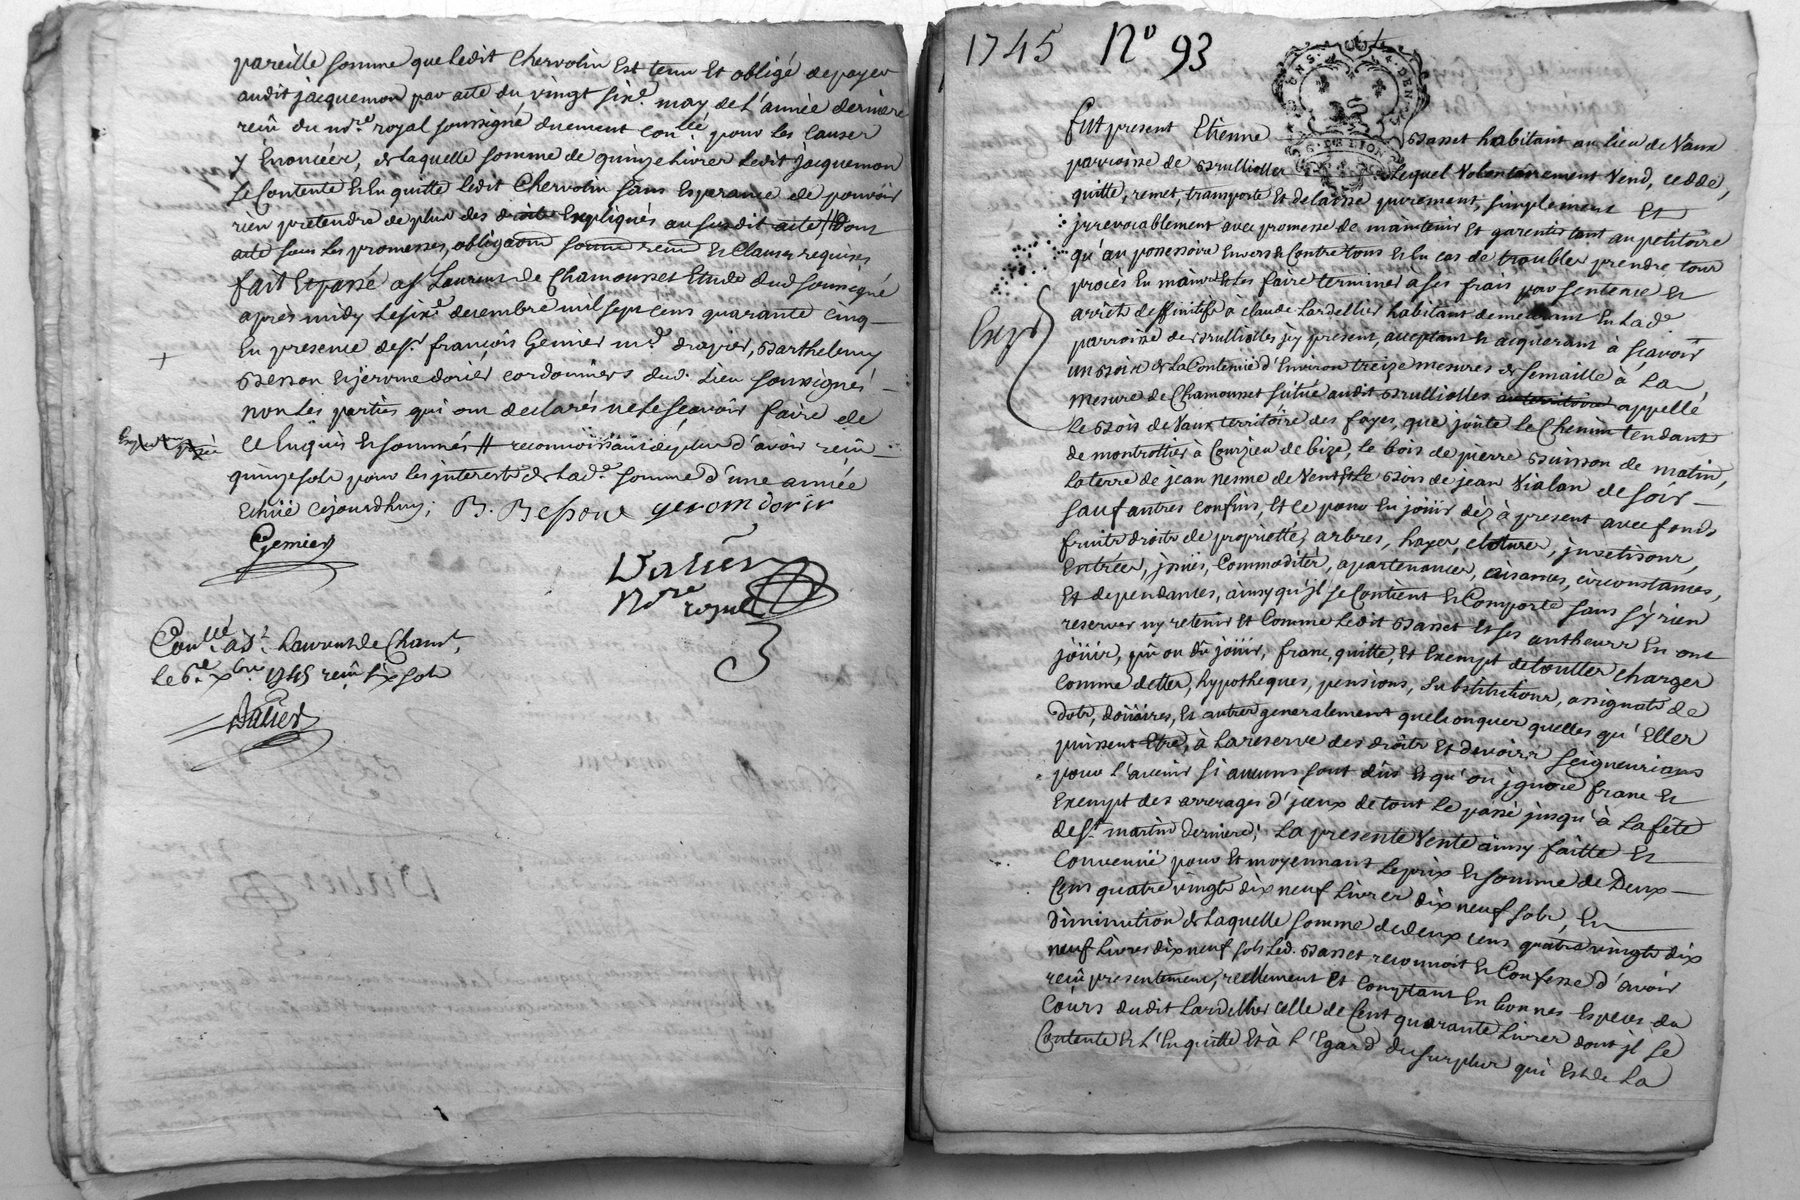 pareille somme que ledit Chervolin Est tenu Et obligé de payer
audit jacquemon par acte du vingt six.e may de l'année derniere
reçû du no.re royal soussigné duement con.llé pour les causes
y Enoncées, & laquelle somme de quinze livres ledit jacquemon
se Contente Et En quitte ledit Chervolin sans Esperance de pouvoir
rien pretendre de plus des droits Expliqués au susdit acte // Dont
acte sous les promesses, obligaõns et Clauses requises
fait Et passé a S.t Laurent de Chamousset Etude dud soussigné
après midy le six.e decembre mil sept cens quarante cinq
En presence de S.r françois Gemier m.d drapier, Barthelemy
Besson Et jerome dorier cordonniers dud. Lieu soussignés
non les parties qui ont declarés ne le sçavoir faire de
ce Enquis Et sommés // reconnoissant de plus d'avoir reçû
quinze sols pour les interests de lad.e somme d'une année
Echüe ce jourdhuy;
B. Besson gerom dorier
Gemier
Dalier
No.re royal
Con.llé à S.t Laurent de Cham.t
le 6.e xbre 1745 reçû six sols
Dalier
1745 N.o 93
G. DE LION
Fut present Etienne Basset habitant au lieu de Vaux
parroisse de Brulliolles Lequel Volontairement Vend, cedde,
quitte, remet, transporte Et delaisse purement, simplement Et
jrrevocablement avec promesse de maintenir Et garentir tant au petitoire
qu'au possessoire Envers & Contre tous Et En cas de troubles prendre tous
procès En main Et Les faire terminer à ses frais par sentence Et
arrêts deffinitifs à claude Lardellier habitant demeurant En lad.e
Exp.é
parroisse de Brulliolles jcy present, acceptant Et acquerant à sçavoir
un Bois de La Contenüe d'Environ treize mesures de semaille à La
mesure de Chamousset situé audit Brulliolles au territoire appellé
le Bois de Vaux territoire des fayes, que joüte Le Chemin tendant
de montrottier à Courzieu de bize, le bois de pierre Buisson de matin,
la terre de jean nesme de Vent Et Le Bois de jean Vialan de soir
sauf autres confins, Et ce pour En joüir dèz à present avec fonds
fruits droits de proprietté, arbres, hayes, clotures, jnvetisons,
Entrées, jssües, Commodités, apartenances, aisances, circonstances,
Et dependances, ainsy qu'jl se Contient Et Comporte sans s'y rien
reserver ny retenir Et Comme Ledit Basset Et ses autheurs En ont
joüir, pû ou dû joüir, franc, quitte, Et Exempt de touttes charges
Comme dettes, hypotheques, pensions, substitutions, assignats de
dots, doüaires, Et autres generalement quelconques quelles qu'Elles
puissent Etre, à La reserve des droits Et devoirs seigneuriaux
pour l'avenir si aucuns sont dûs Et qu'on jgnore franc Et
Exempt des arrerages d'jceux de tout Le passé jusqu'à La fête
de S.t martin derniere; La presente Vente ainsy faitte Et
Convenuë pour Et moyennant Le prix Et somme de Deux
Cens quatre vingts dix neuf Livres dix neuf sols, En
diminution de Laquelle somme de deux cens quatre vingts dix
neuf Livres dix neuf sols Led. Basset reconnoit Et Confesse d'avoir
reçû presentement, reellement Et Comptant En bonnes Especes du
Cours dudit Lardellier celle de Cent quarante Livres dont jl se
Contente Et L'En quitte Et à L'Egard du surplus qui Est de La